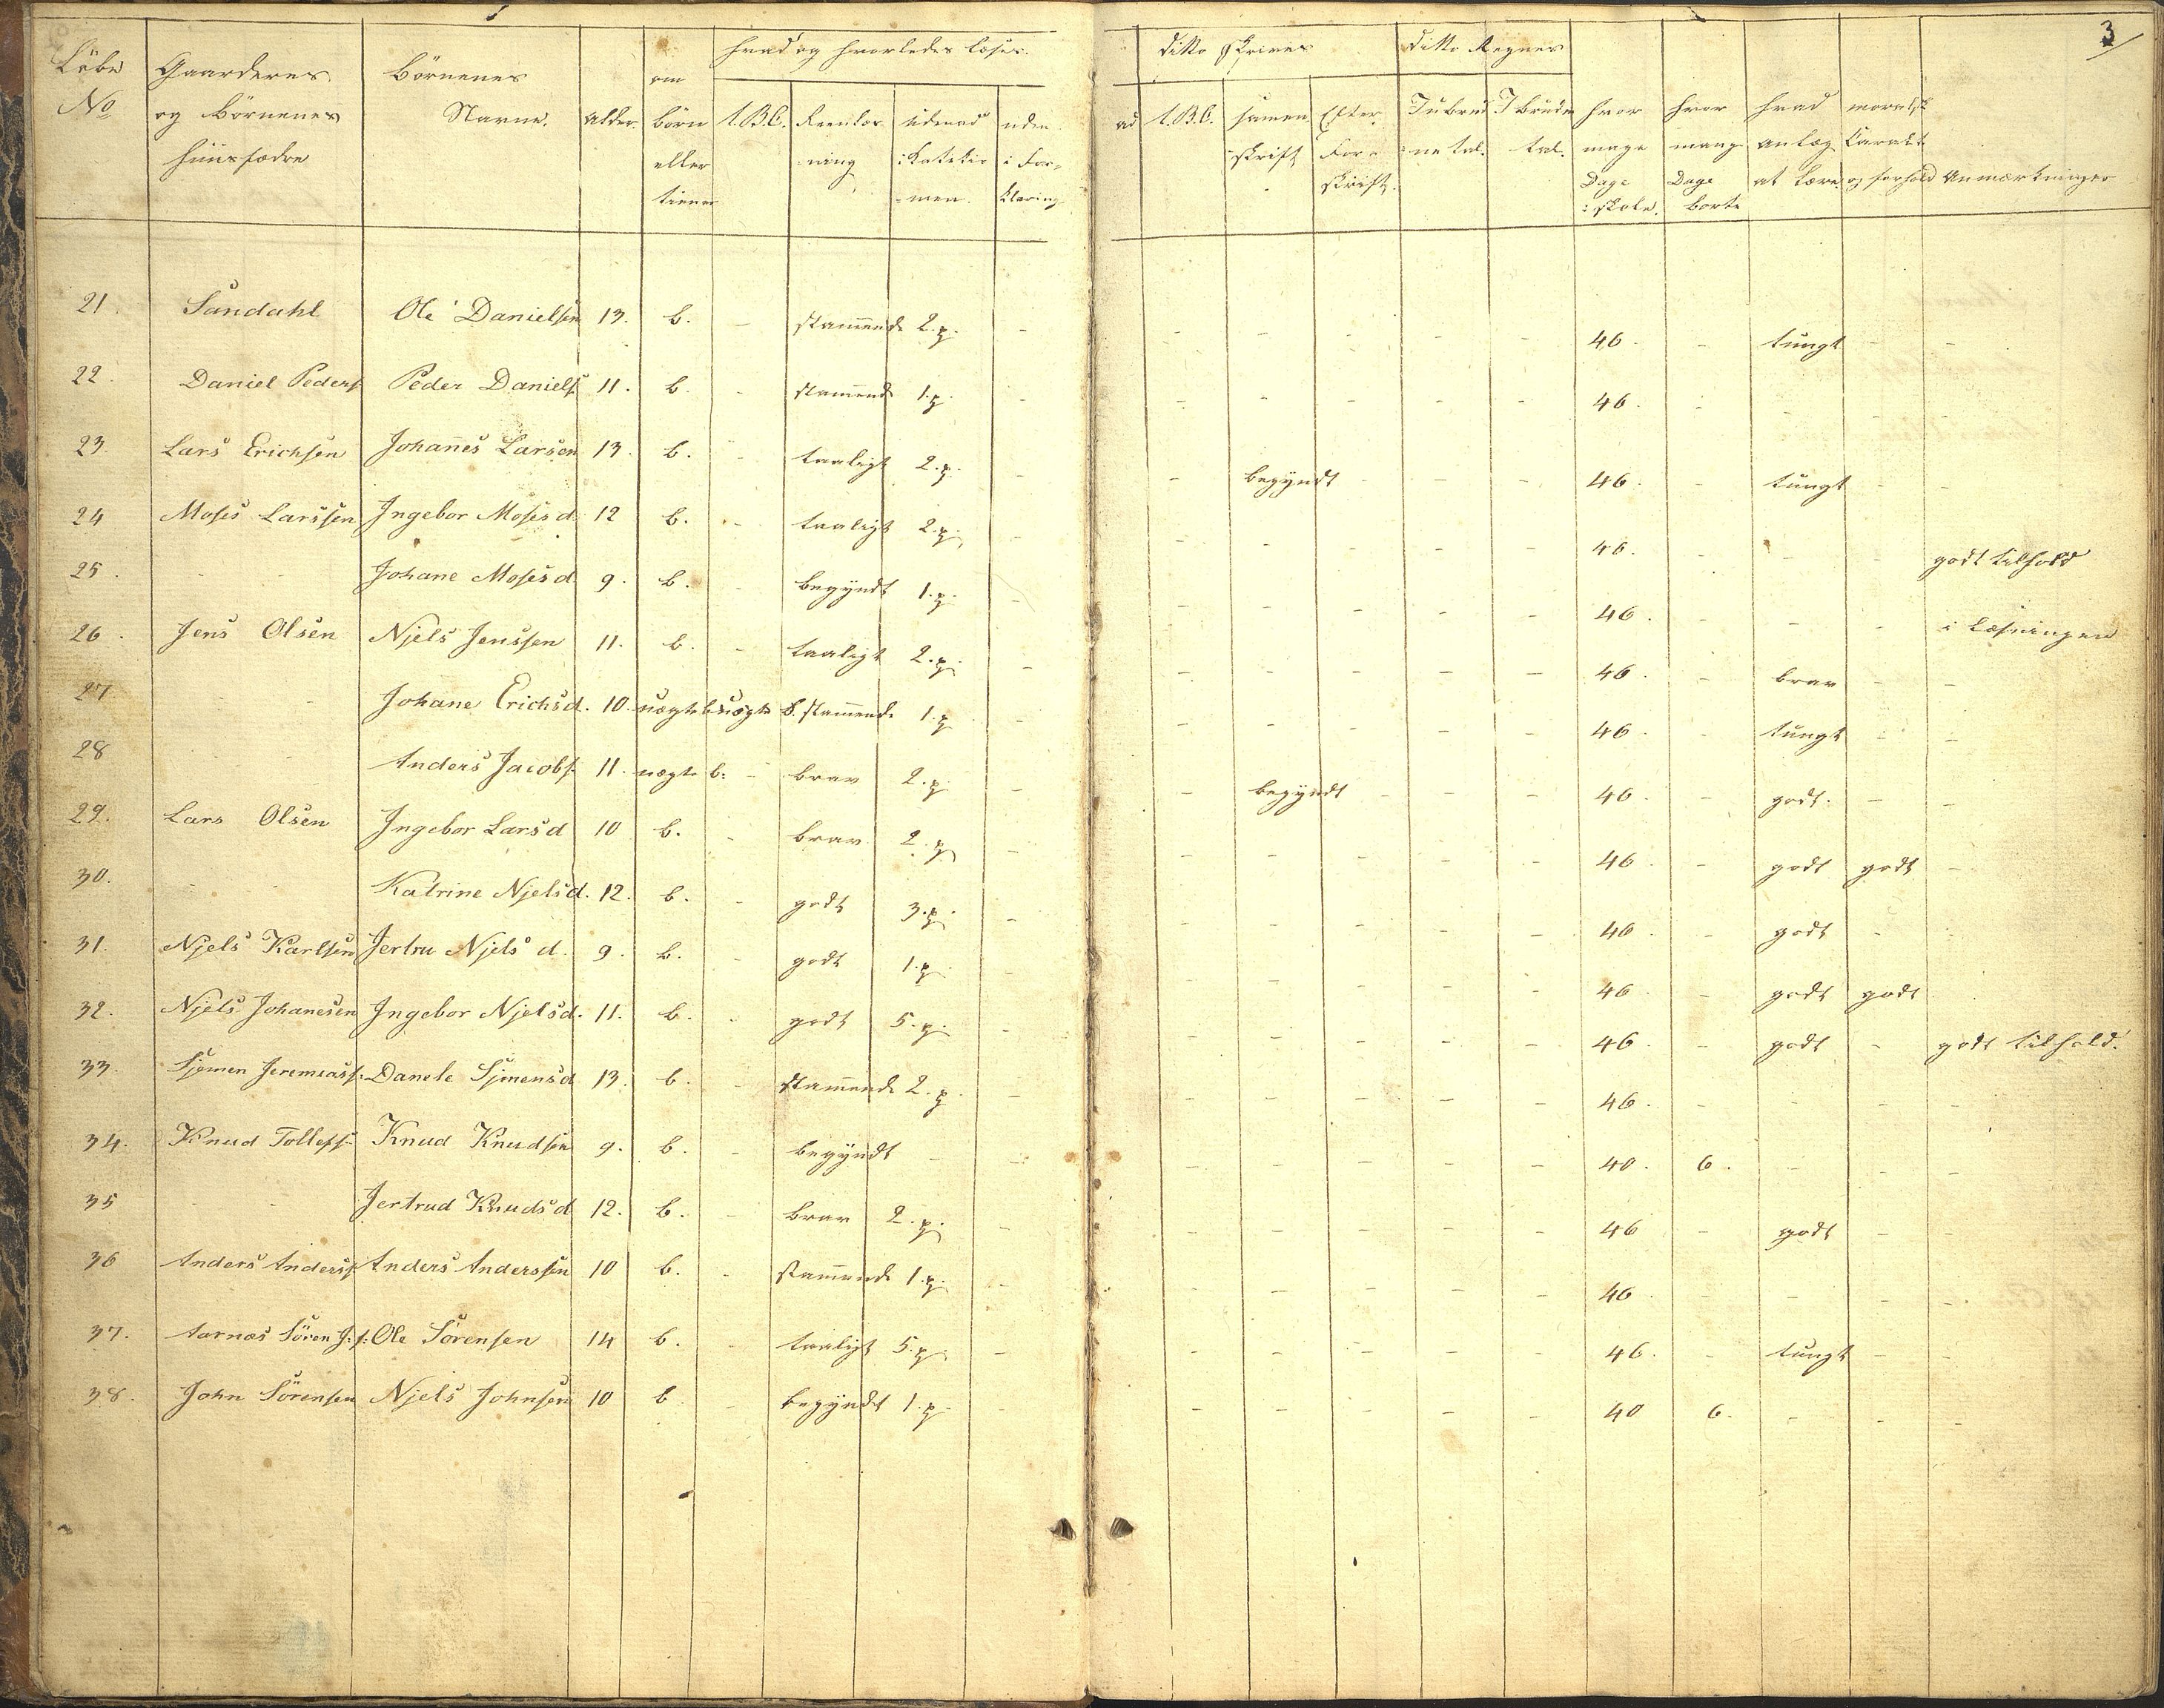 3
Løbe No | Gaarderes og Börnenes Huusfædre | Börnenes Navne. | Alder. | om Börn eller tienere | hvad og hvorledes læses: A.B.C. | Reenlæsning | udenad i Katekismen. | uden i Forklaring
ad | ditto Skrives: A.B.C. | samenskrift | Efter Forskrift. | ditto Regnes: I ubrudne tal. | I brudne tal. | hvor mage Dage i skole. | hvor mang Dage borte | hvad anlæg at lære. | moralsk Caralt og forhold | Anmærkninger
21. Sundahl | Ole Danielsen | 13. | b. | - | stamende | 2. p. | - | - | - | - | - | - | 46. | - | tungt | - | -
22. Daniel Peders. | Peder Daniels. | 11. | b. | - | stamende | 1. p. | - | - | - | - | - | - | 46. | - | - | - | -
23. Lars Erichsen | Johannes Larsen | 13. | b. | - | taaligt | 2. p. | - | - | begyndt | - | - | - | 46. | - | tungt | - | -
24 Moses Larssen | Ingebor Mosesd. | 12 | b. | - | taaligt | 2. p. | - | - | - | - | - | - | 46. | - | - | - | godt tilhold
25. - - | Johane Mosesd. | 9. | b. | - | begyndt | 1. p. | - | - | - | - | - | - | 46. | - | - | - | i Læsningen
26. Jens Olsen | Njels Jenssen | 11. | b. | - | taaligt | 2. p. | - | - | - | - | - | - | 46. | - | brav | - | -
27. - - | Johane Erichsd. | 10. | uægte b. | stamende | 1. p. | - | - | - | - | - | - | 46. | - | tungt | - | -
28 - - | Anders Jacobs. | 11. | uægte b. | - | brav | 2. p. | - | - | begyndt | - | - | - | 46. | - | godt. | - | -
29. Lars Olsen | Ingebor Larsd | 10 | b. | - | brav | 2. p | - | - | - | - | - | - | 46. | - | godt | godt | -
30. - - | Katrine Njelsd. | 12. | b. | - | godt | 3. p. | - | - | - | - | - | - | 46 | - | godt | -
31. Njels Karlsen | Jertru Njelsd. | 9. | b. | - | godt | 1. p. | - | - | - | - | - | - | 46. | - | godt | godt
32. Njels Johanesen | Ingebor Njelsd. | 11. | b. | - | godt | 5. p. | - | - | - | - | - | - | 46. | - | godt | - | godt tilhold.
33. Sjemen Jeremias. | Danele Sjmensd | 13. | b. | - | stamende | 2. p. | - | - | - | - | - | - | 46. | - | - | - | -
34. Knud Tollefs. | Knud Knudsen | 9. | b. | - | begyndt | - | - | - | - | - | - | - | 40. | 6. | - | - | -
35 - - | Jertrud Knudsd | 12. | b. | - | brav | 2. p. | - | - | - | - | - | - | 46 | - | godt | - | -
36 Anders Anders. | Anders Anderssen | 10 | b. | - | stamende | 1. p. | - | - | - | - | - | - | 46. | - | - | - | -
37. Aarnæs Sören J. s. | Ole Sörensen | 14 | b. | - | taaligt | 5. p. | - | - | - | - | - | - | 46. | - | tungt | - | -
38. John Sörensen | Njels Johnsen | 10 | b. | - | begyndt | 1. p. | - | - | - | - | - | - | 40 | 6. | - | - | -